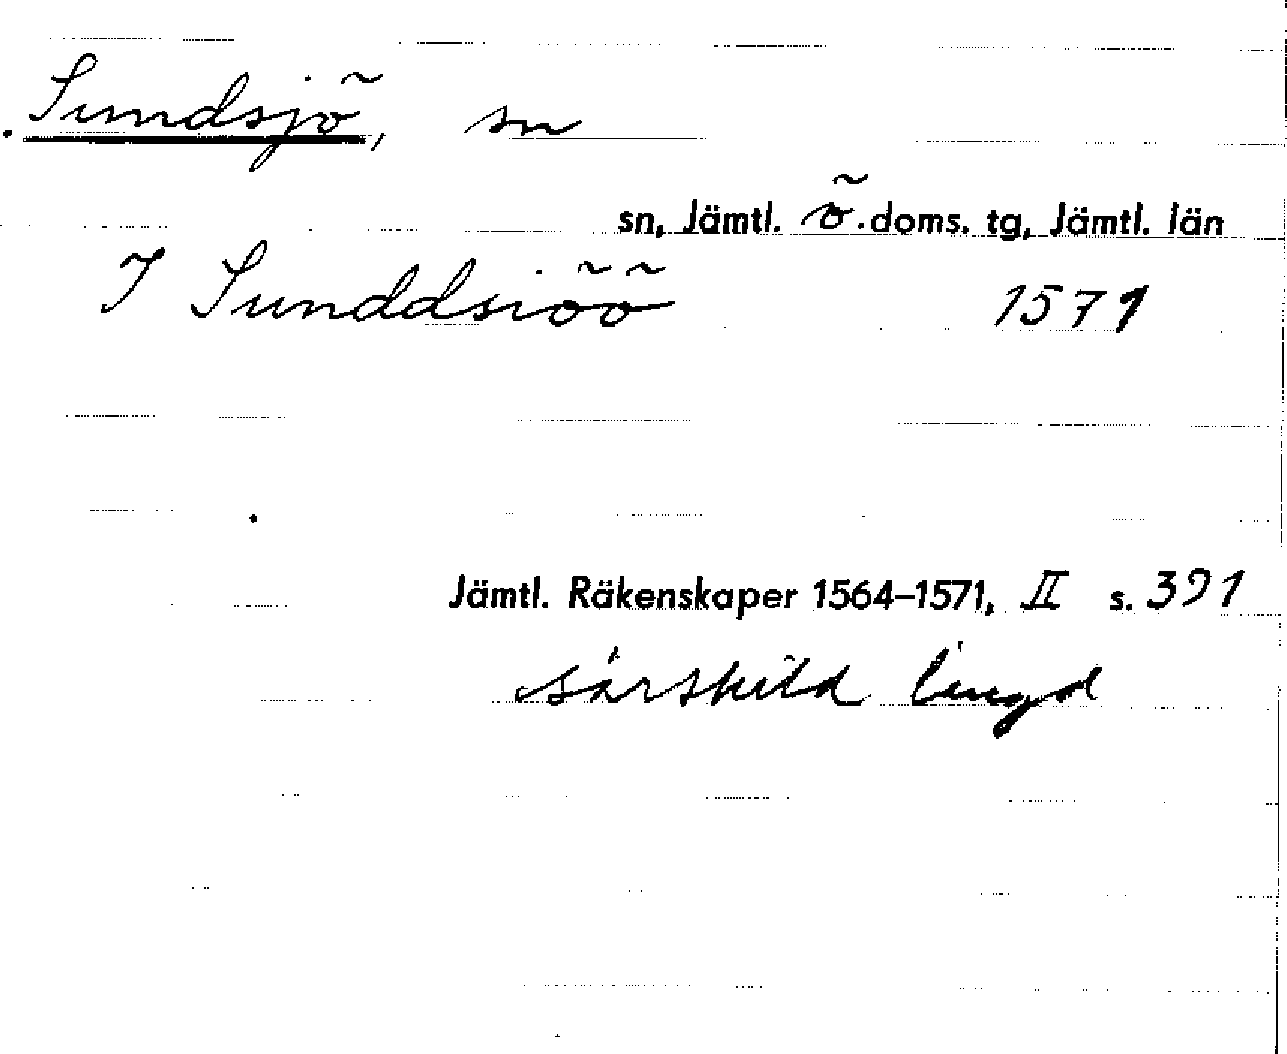 Sundsjö, sn
sn, Jämtl. ö. doms. tg, Jämtl. län
I Sunddsiöö 1571
Jämtl. Räkenskaper 1564–1571, II s. 391
särskild längd